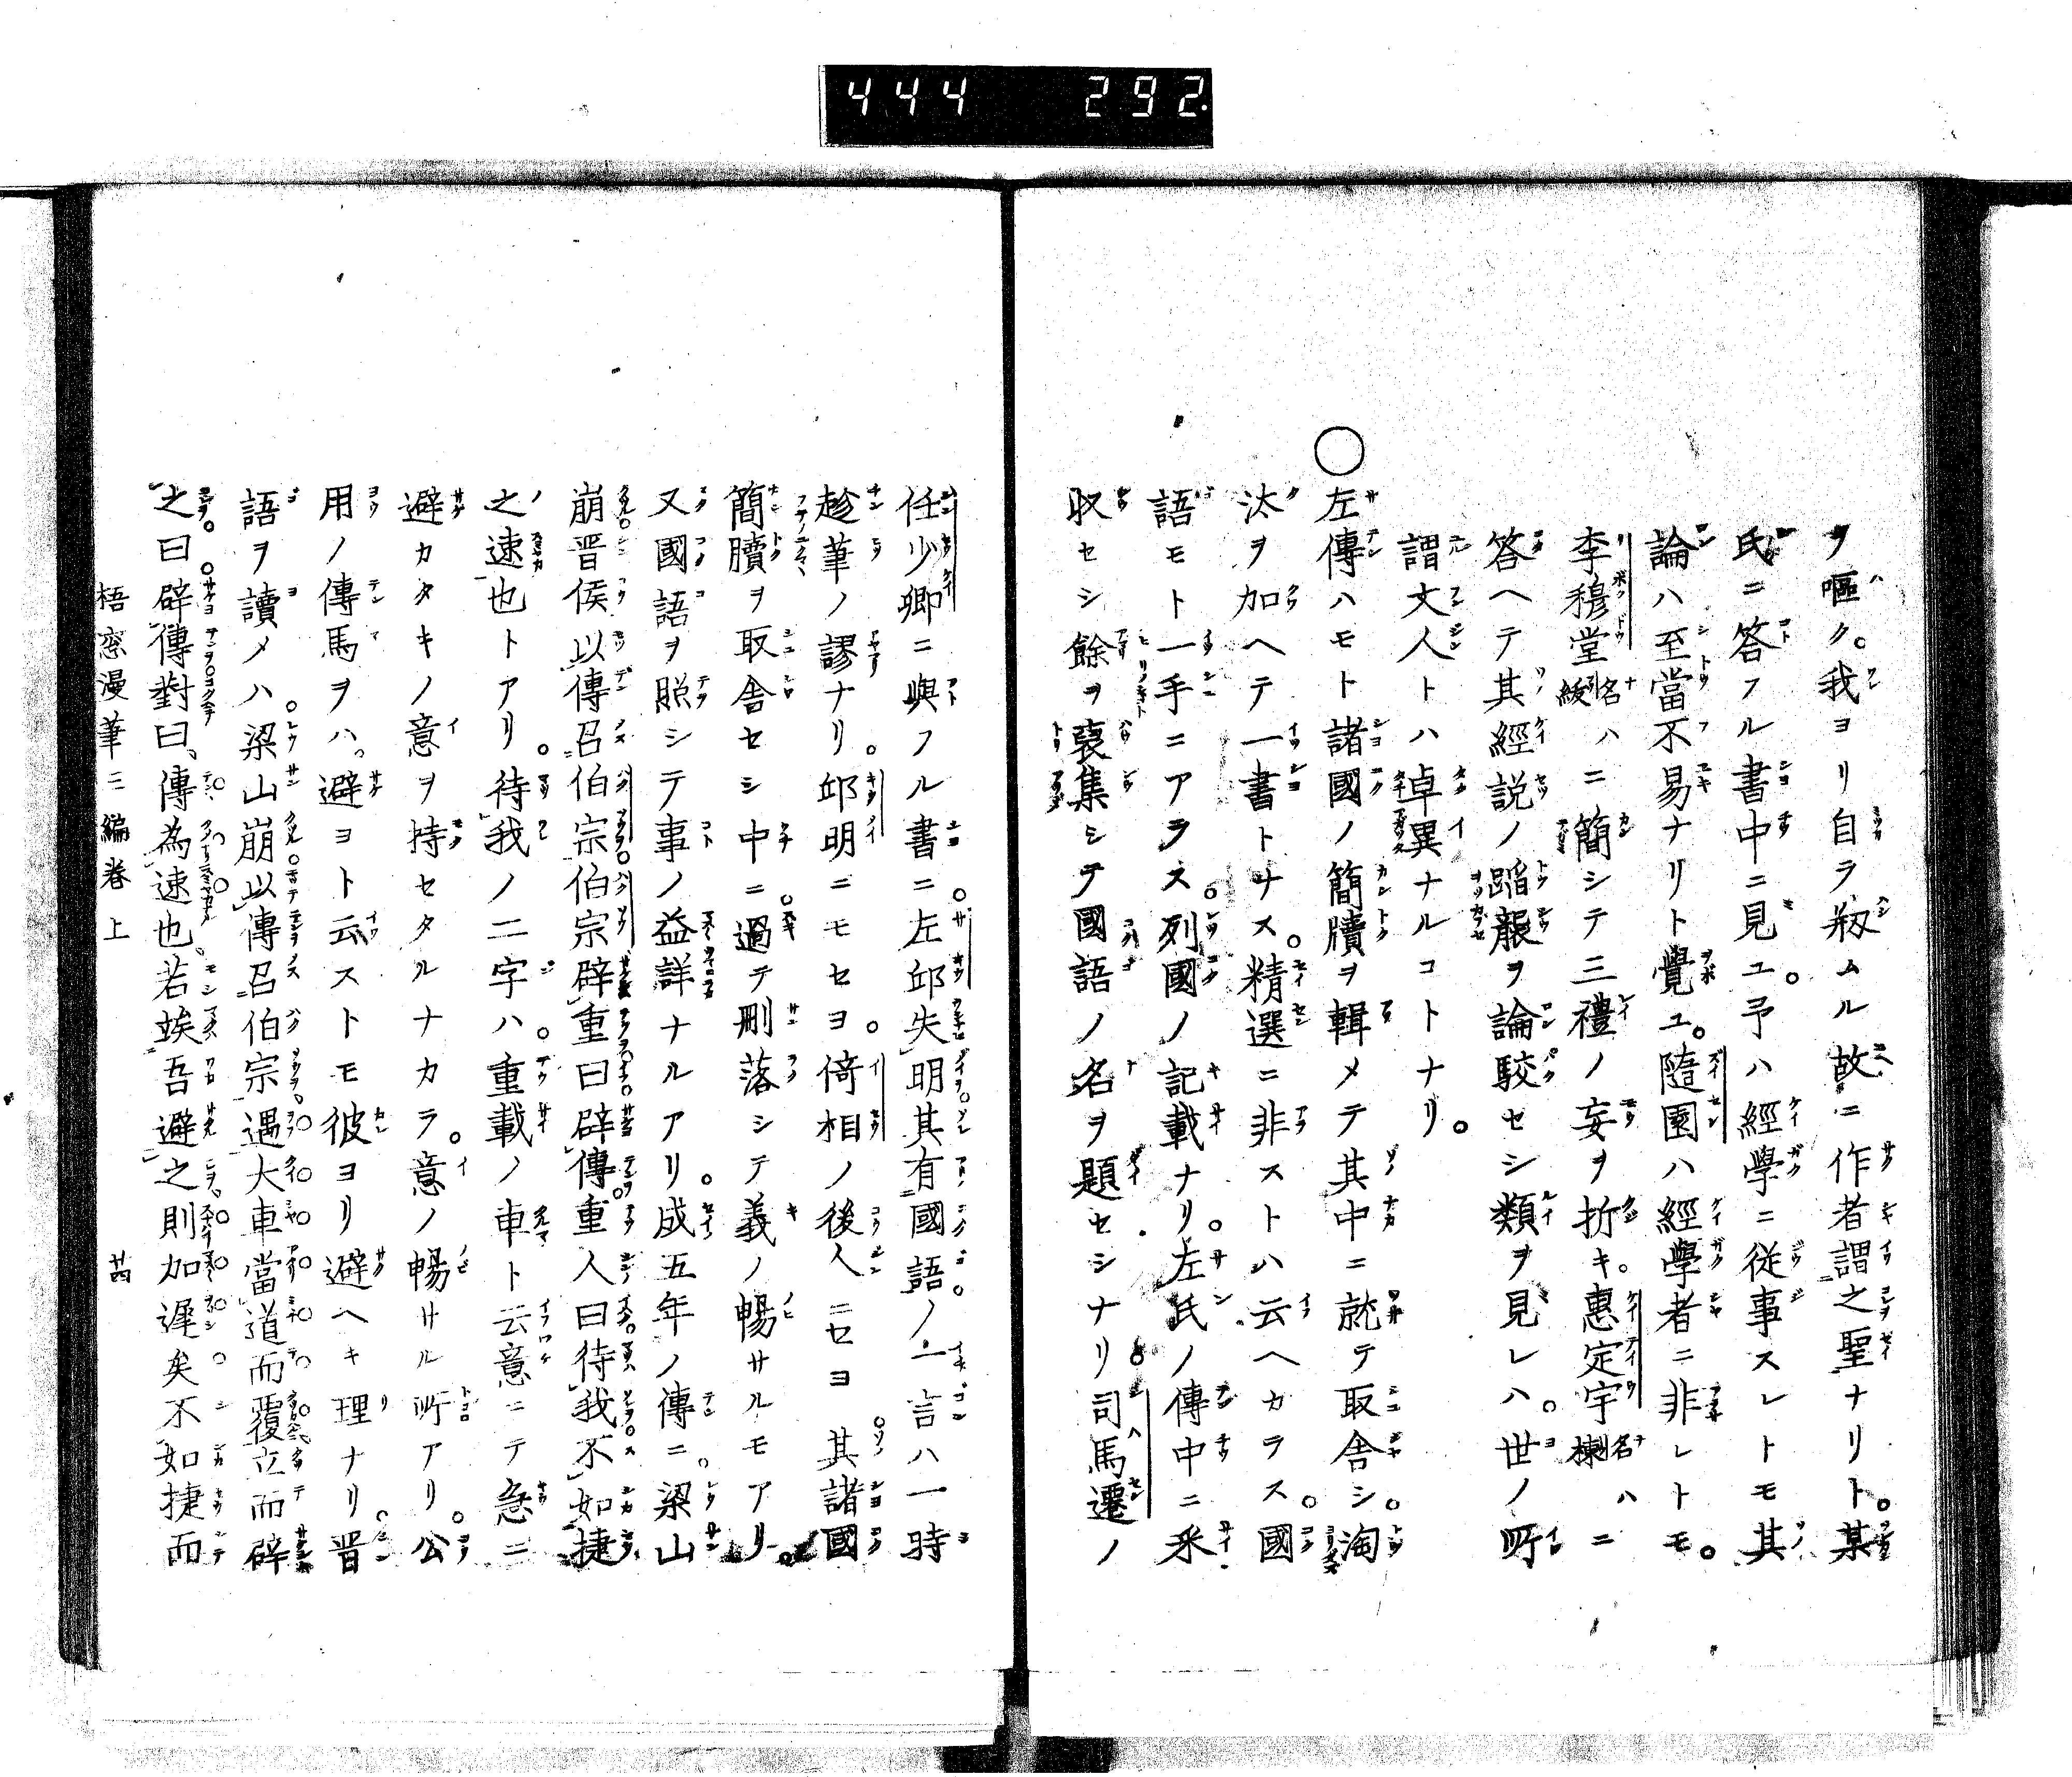 444 292
ヲ嘔ク。我ヨリ自ラ剏ムル故ニ作者謂之聖ナリト。某
氏ニ答フル書中ニ見ユ。予ハ經學ニ従事スレトモ其
論ハ至當不易ナリト覺ユ。隨園ハ經學者ニ非レトモ。
李穆堂名ハ紱ニ簡シテ三禮ノ妄ヲ折キ。惠定宇名ハ棟ニ
答ヘテ其經説ノ蹈襲ヲ論駮セシ類ヲ見レハ。世ノ所
謂文人トハ卓異ナルコトナリ。
○左傳ハモト諸國ノ簡牘ヲ輯メテ其中ニ就テ取舎シ。淘
汰ヲ加ヘテ一書トナス。精選ニ非ストハ云ヘカラス。國
語モト一手ニアラス。列國ノ記載ナリ。左氏ノ傳中ニ采
収セシ餘ヲ裒集シテ國語ノ名ヲ題セシナリ司馬遷ノ
任少卿ニ與フル書ニ。左邱失明其有國語。ノ一言ハ一時
趁筆ノ謬ナリ。邱明ニモセヨ。倚相ノ後人ニセヨ其諸國
簡牘ヲ取舎セシ中ニ。過テ刪落シテ義ノ暢サルモアリ。
又國語ヲ照シテ事ノ益詳ナルアリ。成五年ノ傳ニ。梁山
崩晋侯以傳召伯宗伯宗辟重曰辟傳重人曰待我不如捷
之速也トアリ。待我ノ二字ハ。重載ノ車ト云意ニテ急ニ
避カタキノ意ヲ持セタルナカラ。意ノ暢サル所アリ。公
用ノ傳馬ヲハ。避ヨト云ストモ彼ヨリ避ヘキ理ナリ。晋
語ヲ讀メハ。梁山崩以傳召伯宗遇大車當道而覆立而辟
之曰辟傳對曰。傳為速也。若竢吾避之則加遲矣不如捷而
梧窓漫筆三編巻上 廿四